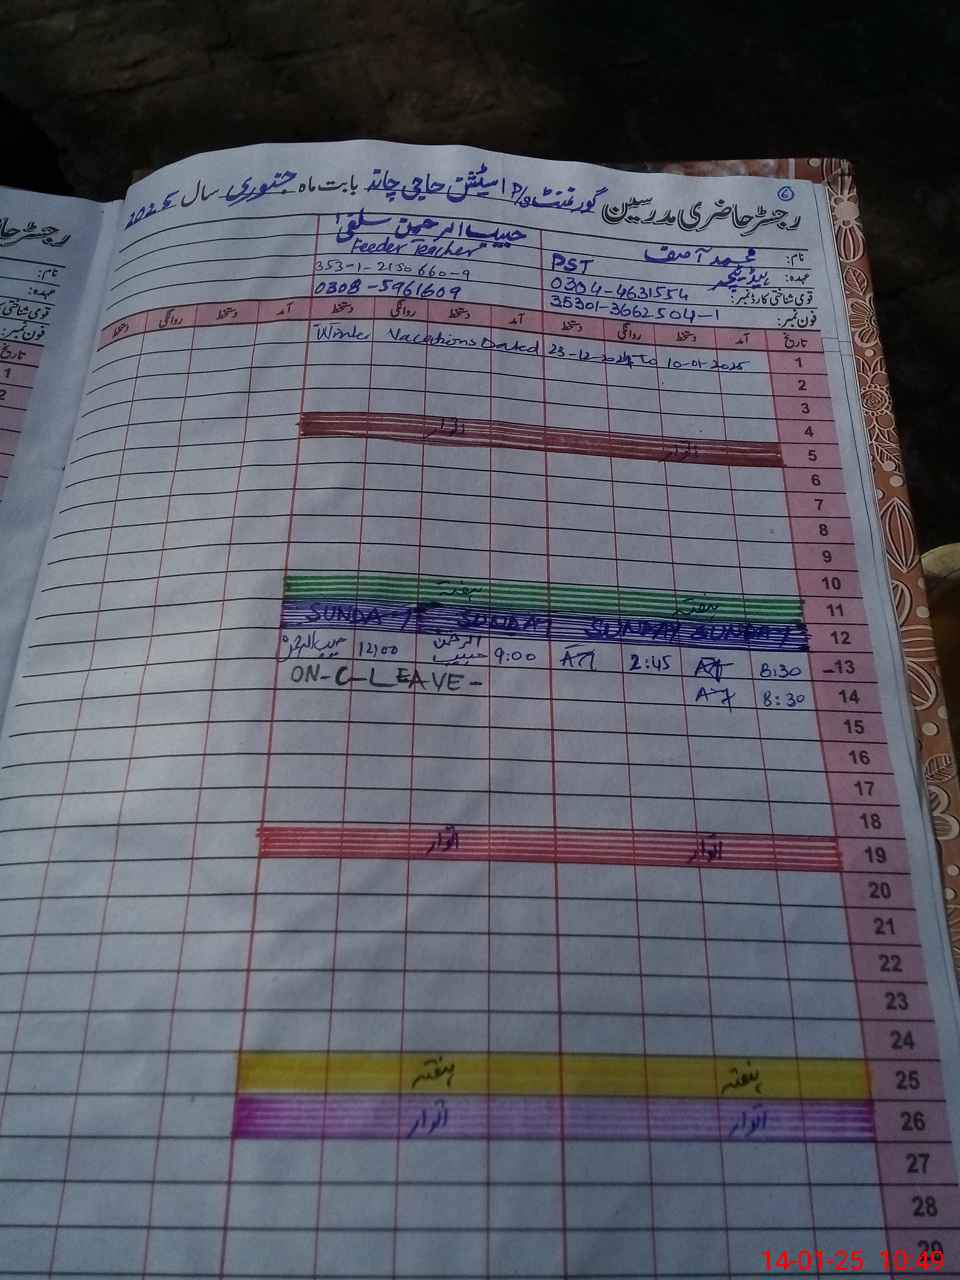 رجسٹر حاضری مدرسین گورنمنٹ P/S اسٹیشن حاجی چاند بابت ماہ جنوری سال 2025
6
نام: محمد آصف حبیب الرحمن سلفی
عہدہ: ہیڈ ٹیچر PST Feeder Teacher
قومی شناختی کارڈ نمبر: 0304-4631554 353-1-2150660-9
فون نمبر: 35301-3662504-1 0308-5961609
تاریخ آمد دستخط روانگی دستخط آمد دستخط روانگی دستخط آمد دستخط روانگی دستخط
1 Winter Vacations Dated 23-12-2024 To 10-01-2025
2
3
4 اتوار
5 اتوار
6
7
8
9
10
11 ہفتہ ہفتہ
12 SUNDAY SUNDAY SUNDAY SUNDAY
13 8:30 2:45 9:00 حبیب الرحمن 12:00 حبیب الرحمن
14 8:30 ON-C-LEAVE-
15
16
17
18
19 اتوار اتوار
20
21
22
23
24
25 ہفتہ ہفتہ
26 اتوار اتوار
27
28
29
رجسٹر
نام:
عہدہ:
قومی شناختی کا
فون نمبر:
تاریخ
1
2
14-01-25 10:49